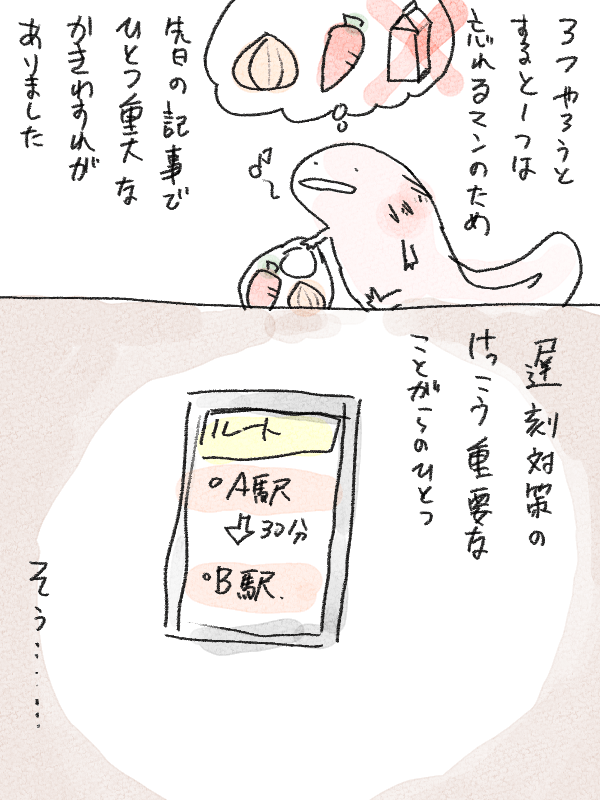 3つやろうと
すると一つは
忘れるマンのため
先日の記事で
ひとつ重大な
かきわすれが
ありました
遅刻対策の
けっこう重要な
ことがらのひとつ
ルート
A駅
30分
B駅.
そう……